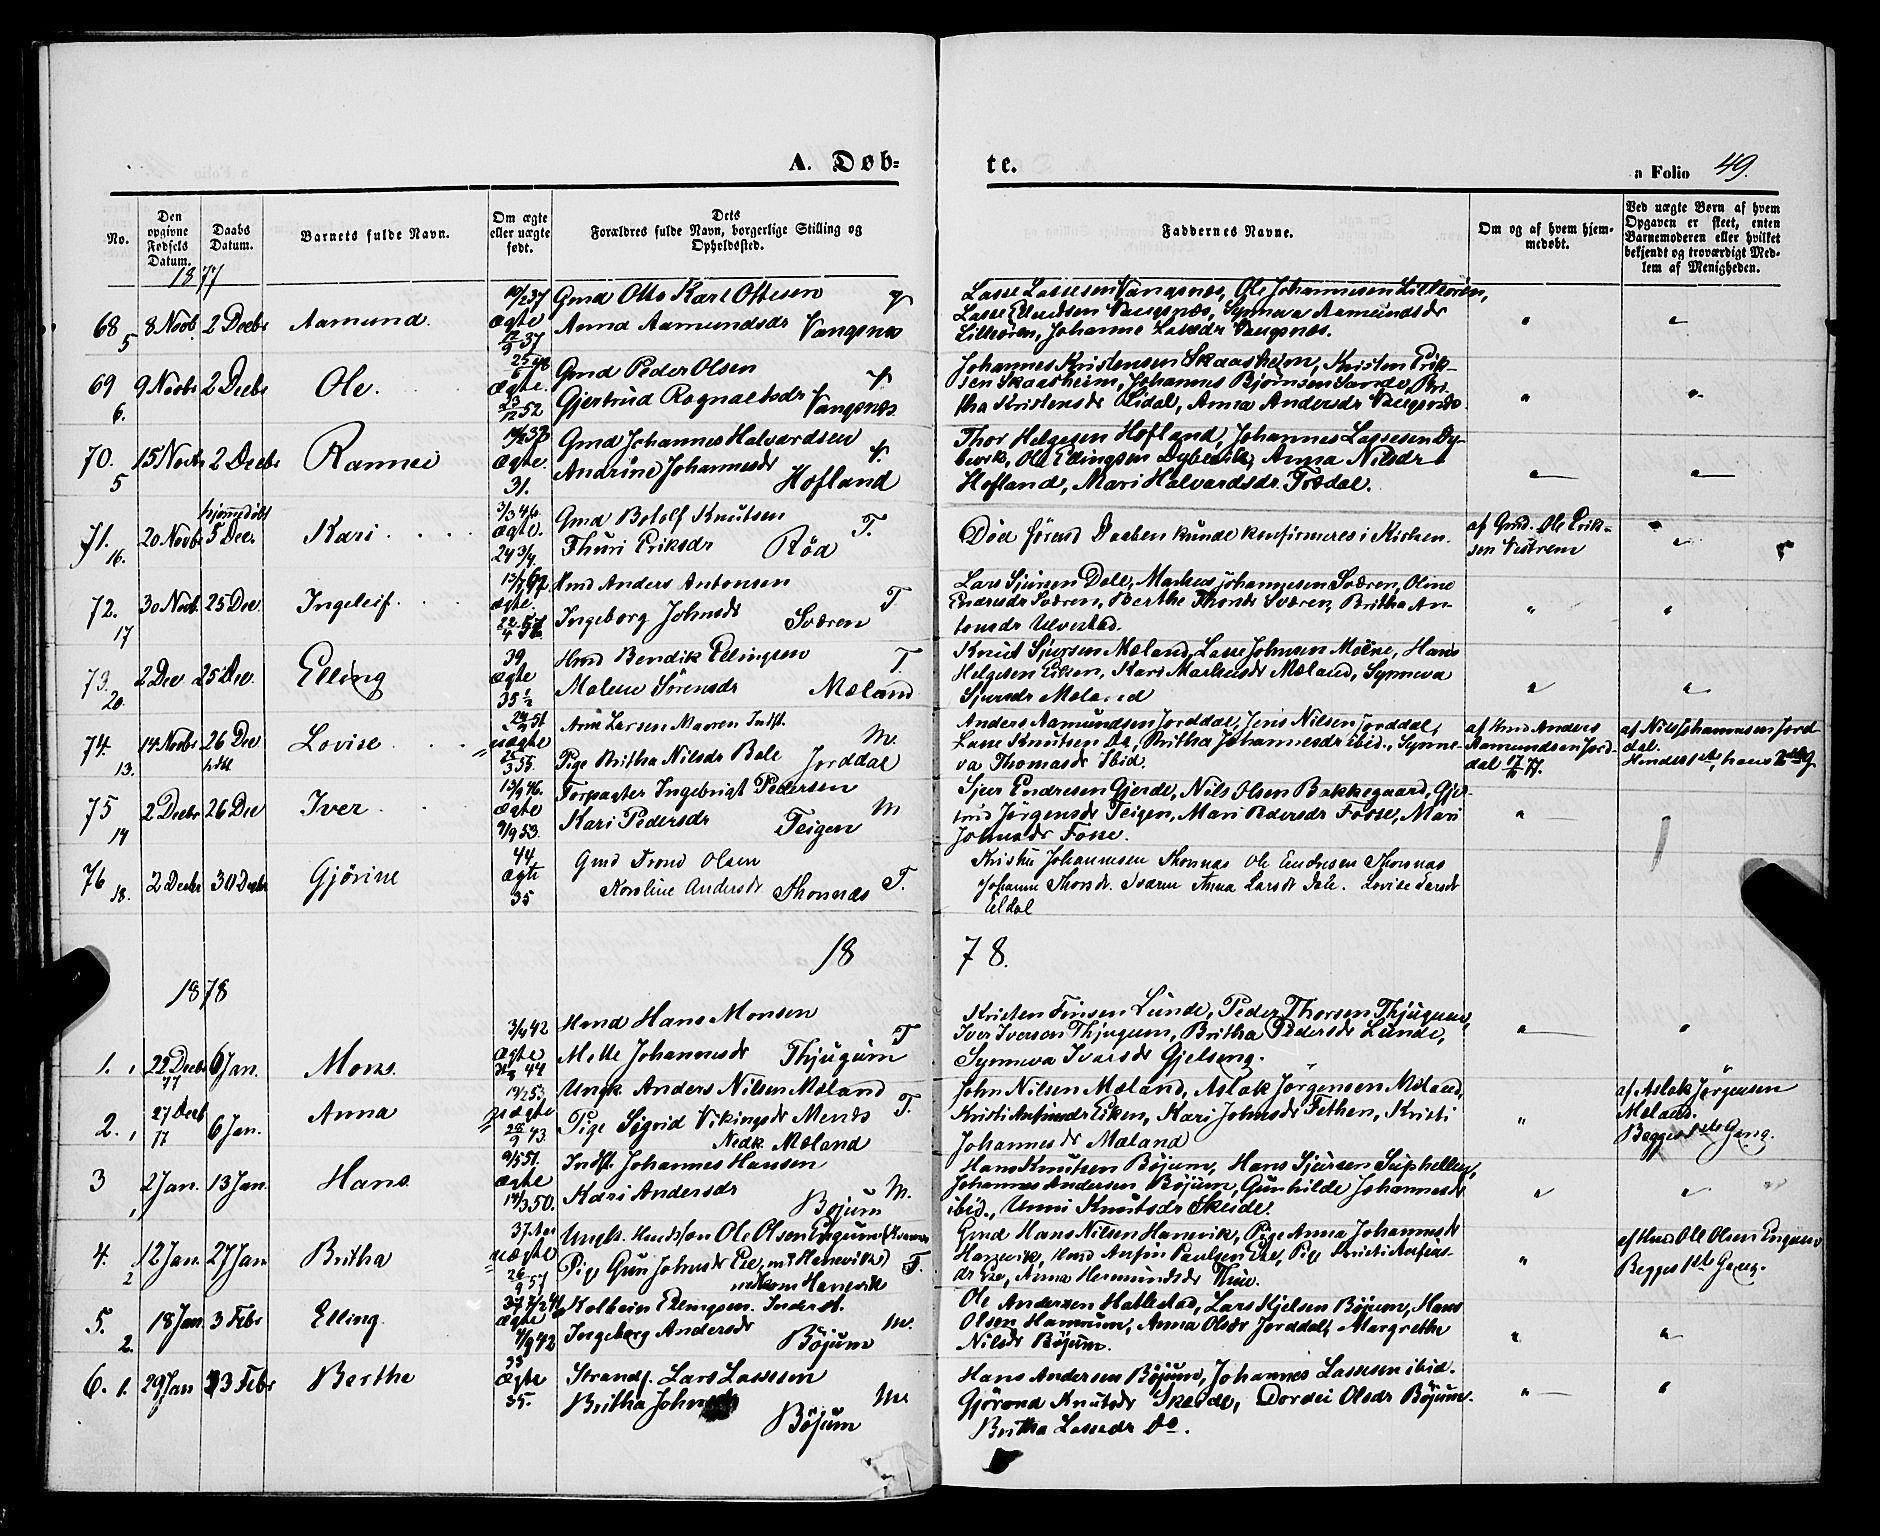 A. Døb=
te.
a Folio 49.
No.
Den opgivne Fødsels Datum.
Daabs Datum.
Barnets fulde Navn.
Om ægte eller uægte født.
Dets Forældres fulde Navn, borgerlige Stilling og Opholdssted.
Faddernes Navne.
Om og af hvem hjemmedøbt.
Ved uægte Børn af hvem Opgaven er skeet, enten Barnemoderen eller hvilket bekjendt og troværdigt Medlem af Menigheden.
1877
68 5 8 Novb. 2 Decbr Aamund. 37 ægte 37
Gmd Otto Karl Ottesen
Anna Aamundsdr Vangsnes
Lasse Lassesen Vangsnæs, Ole Johannessen
Vangsnæs, Synneva Aamundsdr
Johanne Lassedr Vangsnæs.
69 6. 9 Novbr 2 Decbr Ole. ægte. 23/12 52
Gmd Peder Olsen
Gjertrud Ragnaldsdr Vangsnæs
Johannes Kristensen Skaasheim, Kristen Erik-
sen Skaasheim, Johannes Bjørnsen Sande, Bri-
tha Kristensdr Anna Andersdr Vangsnæs
70. 5 15 Novbr 2 Decbr Rannei ægte. 31.
Gmd Johannes Halvardsen
Andrine Johannesdr Hofland
Thor Helgesen Hofland, Johannes Lassesen Dy-
bevik, Ole Ellingsen Dybevik, Anna Nilsdr
Hofland, Mari Halvardsdr. Fosdal.
71. 16. 20 Novbr hjemmedøbt 5 Decr Kari ægte.
Gmd Botolf Knutsen T.
Thuri Eriksdr Röd
Död förend Daaben kunde konfirmeres i Kirken.
af Gmd. Ole Erik-
sen Vestrem
72. 17 30 Novb. 25 Dec Ingeleif. ægte.
Hmd Anders Antonsen T
Ingeborg Johnsdr Sværen
Lars Sjursen Dale, Markus Johannesen Sværen, Oline
Endresdr Sværen, Berthe Thorsdr Sværen, Britha An-
tonsdr Ulvestad.
73. 20. 2 Dec 25 Dec. Elling 39 ægte 35 1/2
Hmd Bendik Ellingsen T
Malene Sörensdr Mæland
Knud Sjursen Mæland, Lasse Johnsen Hans
Helgesen Eitsen, Kari Markusdr Mæland, Synneva
Sjursdr Mæland
74. 13. 14 Novbr 26 Dec Lovise uægte 55.
Arne Larsen Mauren Indst. M.
Pige Britha Nilsdr Bale Jorddal
Anders Aamundsen Jorddal, Jens Nilsen Jorddal,
Lasse Knutsen Do, Britha Johannesdr ibid., Synne-
va Thomasdr Ibid.
af Hmd Anders
Aamundsen Jord-
dal 77.
af Nils Johannesen Jord
dal.
Hendes hans 2den G.
75 14 2 Decbr 26 Dec Iver ægte 9/9 53.
Forpagter Ingebrigt Pedersen M
Kari Pedersdr Teigen
Sjur Endresen Gjerde, Nils Olsen Bakkegaard, Gjer-
trud Jørgensdr Teigen, Mari Pedersdr Fosse, Mari
Johnsdr Fosse.
76 18. 2 Decbr 30 Decbr Gjørine 44. ægte 35
Gmd Trond Olsen T.
Karoline Andersdr Thonnæs
Kristen Johannesen Thonnæs Ole Endresen Thonnæs
Johanne Thorsdr. Sværen Anna Larsdr Dale. Lovise
Eldal
1878.
1878
1. 22 Decbr 77 6 Jan. Mons. 3/4 42 ægte 44
Hmd Hans Monsen T
Mette Johannesdr Thjugum
Kristen Finsen Lunde, Peder Thorsen Thjugum,
Iver Iversen Thjugum, Britha Pedersdr Lunde,
Synneva Ivarsdr Gjelseng.
2. 27 Decb 77 6 Jan. Anna uægte 43.
Ungk. Anders Nilsen Mæland T.
Pige Sigrid Vikingsdr Menæs
Nedk. Mæland
John Nilsen Mæland, Aslak Jørgensen Mæland,
Kristi Anfinsdr Eiken, Kari Johnsdr Fethen, Kristi
Johannesdr Mæland
af Aslak Jørgensen
Mæland.
Begges 1ste Gang.
3 2 Jan. 13 Jan. Hans 9/5 51. ægte 14/3 50.
Indst. Johannes Hansen
Kari Andersdr Bøjum M.
Hans Knutsen Bøjum, Hans Sjursen Suphellen,
Johannes Andersen Bøjum, Gunhilde Johannesdr
ibid., Unni Knutsdr Skeide.
4. 2 12 Jan. 27 Jan Britha uægte 26/9 57
Ungk. Ole Olsen Engum
Pige Guri Johnsdr Ese, Hanevik T.
Hanevik
Gmd Hans Nilsen Hanevik, Pige Anna Johannesdr
Hanevik, Hmd Anfin Paulsen Ese, Pige Kristi Anfins-
dr Ese, Anna Hermundsdr Thue.
af Hmd Ole Olsen Engum
Begges 1ste Gang.
5. 2. 18 Jan 3 Febr Elling ægte 7/9 42
Kolbein Ellingsen. Inderst. M.
Ingeborg Andersdr Bøjum
Ole Andersen Hatlestad, Lars Kjelsen Bøjum, Hans
Olsen Hamrum, Anna Olsdr Jorddal, Margrethe
Nilsdr Bøjum.
6. 1. 29 Jan 3 Febr Berthe 33 ægte 35.
Strands. Lars Lassesen M.
Britha Johnsdr Bøjum
Hans Andersen Bøjum, Johannes Lassesen ibid.
Gjørond Knutsdr Skeide, Dordei Olsdr Bøjum.
Britha Lassedr Do.